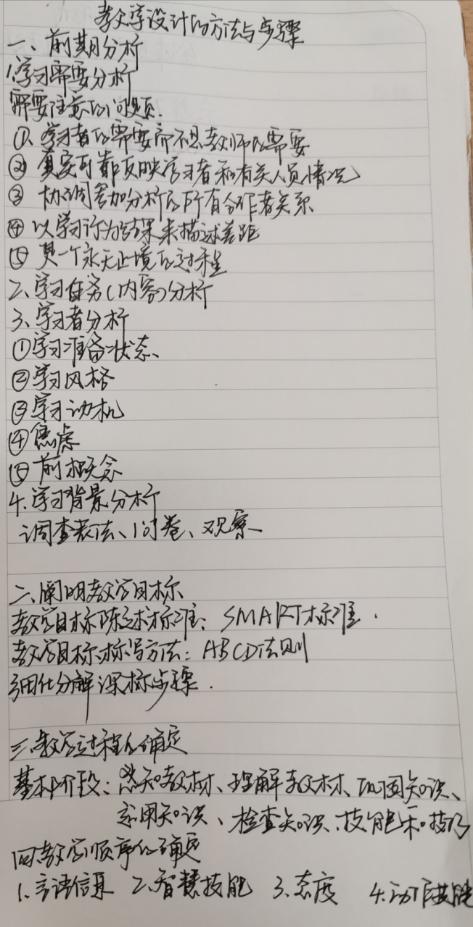 教学设计的方法与步骤
一、前期分析
1.学习需要分析
需要注意的问题:
①学习者的需要而不是教师的需要
②真实可靠反映学习者和有关人员情况
③协调参加分析的所有合作者关系
④以学习行为结果来描述差距
⑤是一个永无止境的过程
2、学习任务(内容)分析
3、学习者分析
①学习准备状态
②学习风格
③学习动机
④焦虑
⑤前概念
4.学习背景分析
调查表法、问卷、观察
二、阐明教学目标
教学目标陈述标准:SMART标准.
教学目标标写方法:ABCD法则
细化分解课标步骤.
三、教学过程的确定
基本阶段:感知教材、理解教材、巩固知识、
运用知识、检查知识、技能和技巧
四教学顺序的确定
1.言语信息 2.智慧技能 3.态度 4.动作技能